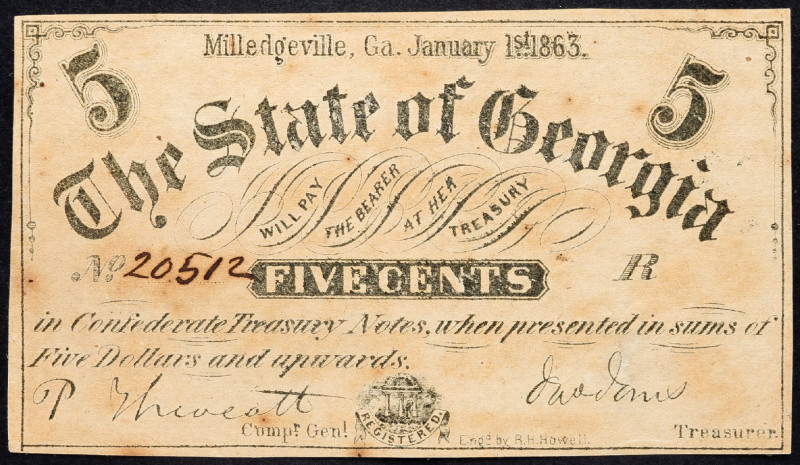 Milledgeville, Ga. January 1st 1863.
5 5
The State of Georgia
WILL PAY THE BEARER AT HER TREASURY
No 20512 FIVE CENTS R
in Confederate Treasury Notes, when presented in sums of
Five Dollars and upwards.
P Thweatt Jno Jones
Compr. Genl. REGISTERED. Engd by R.H.Howell. Treasurer